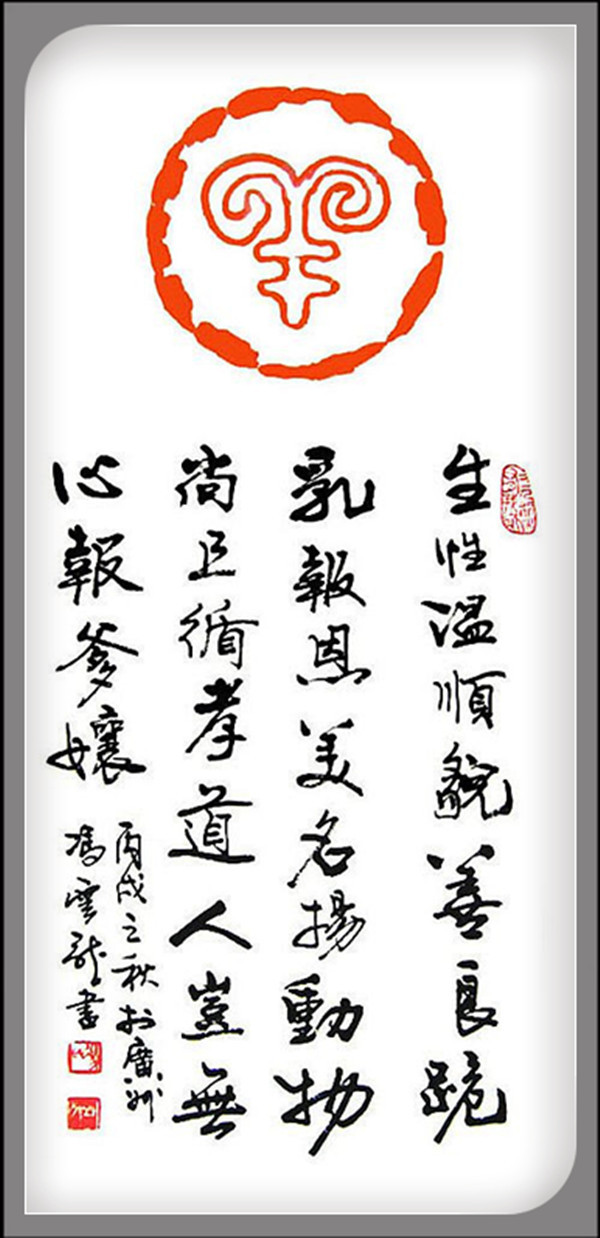 生性温順貌善良跪
乳報恩美名揚動物
尚且循孝道人豈無
心報爹孃
丙戌之秋於廣州
馮雲龍書